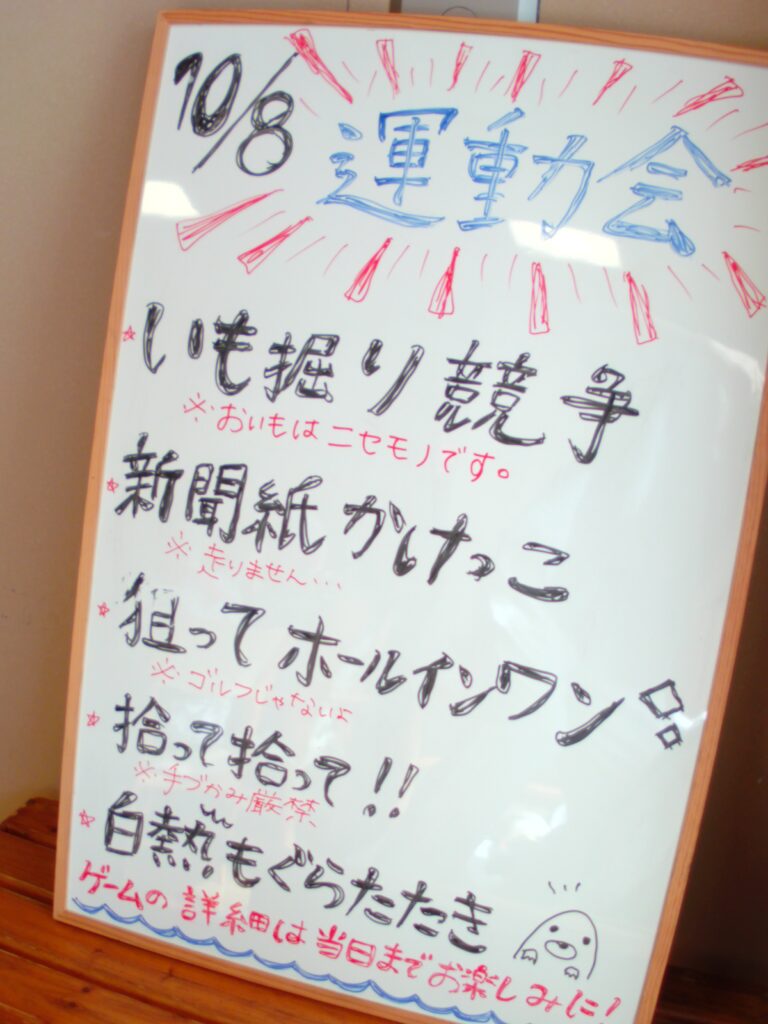 10/8 運動会
☆いも掘り競争
※おいもはニセモノです。
☆新聞紙かけっこ
※走りません…
☆狙ってホールインワン!!
※ゴルフじゃないよ
☆拾って拾って!!
※手づかみ厳禁
☆白熱!もぐらたたき
ゲームの詳細は当日までお楽しみに!